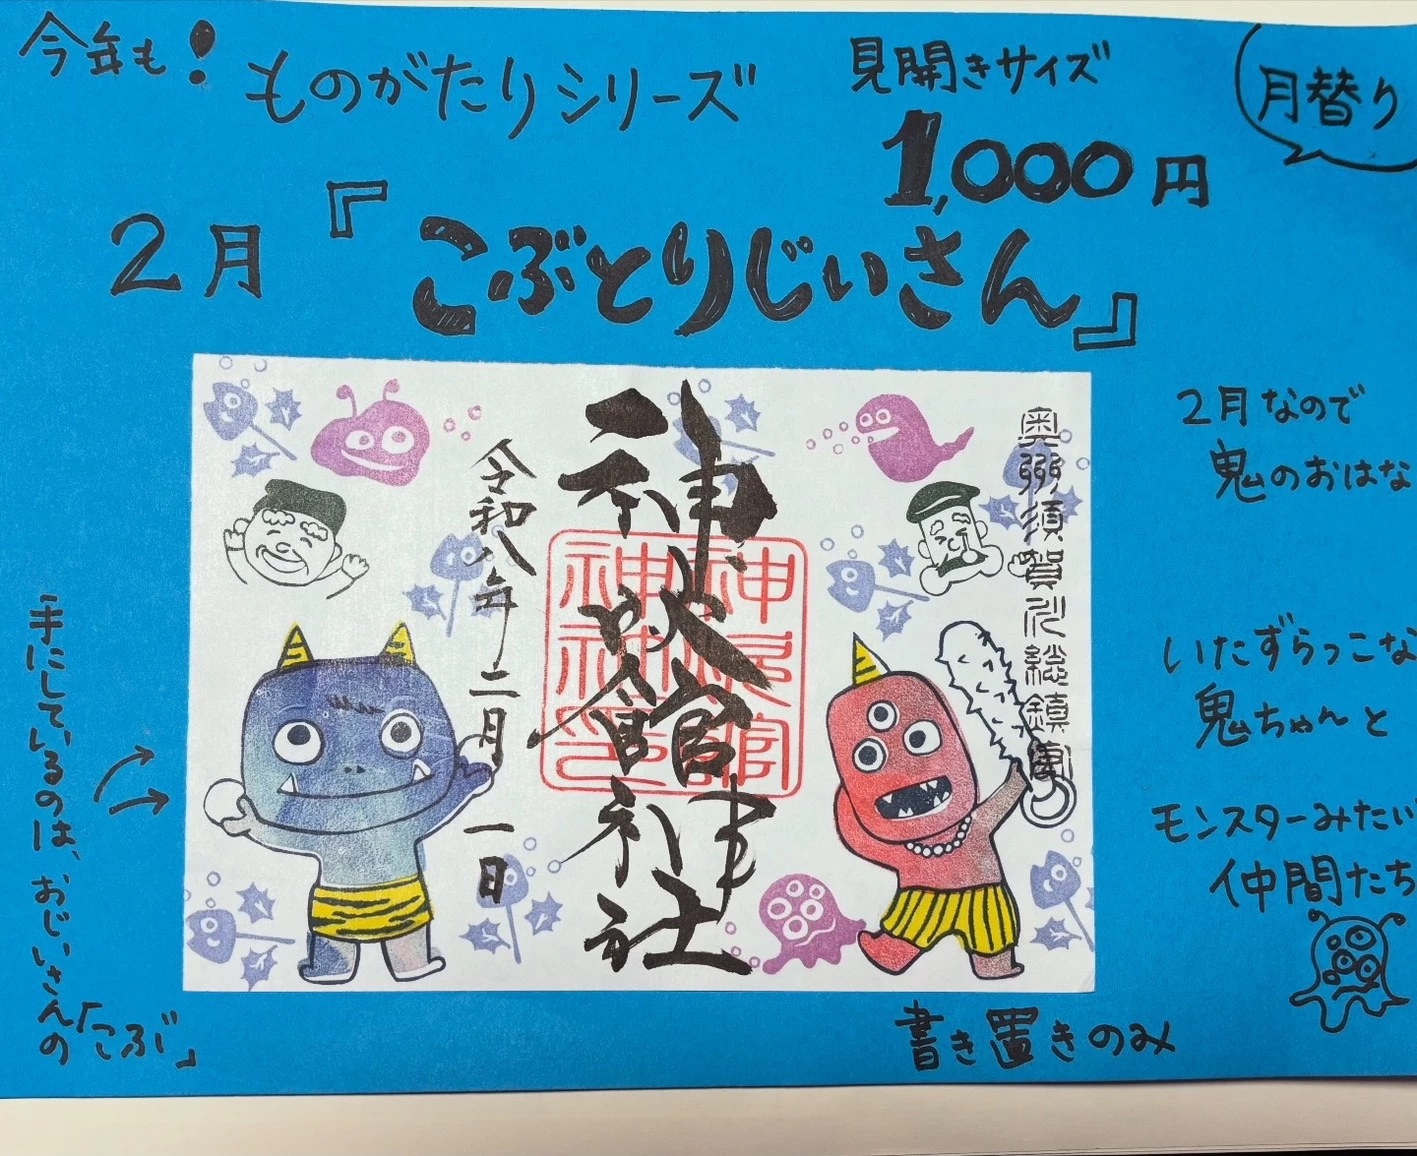 今年も!
ものがたりシリーズ
見開きサイズ
1,000円
月替り
2月『こぶとりじいさん』
2月なので
鬼のおはな
いたずらっこな
鬼ちゃんと
モンスターみたい
仲間たち
奥州須賀川総鎮守
神炊館神社
令和八年二月一日
手にしているのは、おじいさんの「こぶ」
書き置きのみ